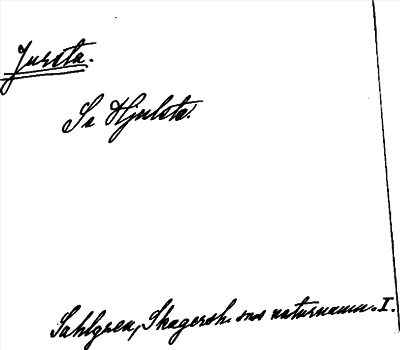 Jursta.
Se Hjulsta.
Sahlgren, Skagersh. sns naturnamn. I.